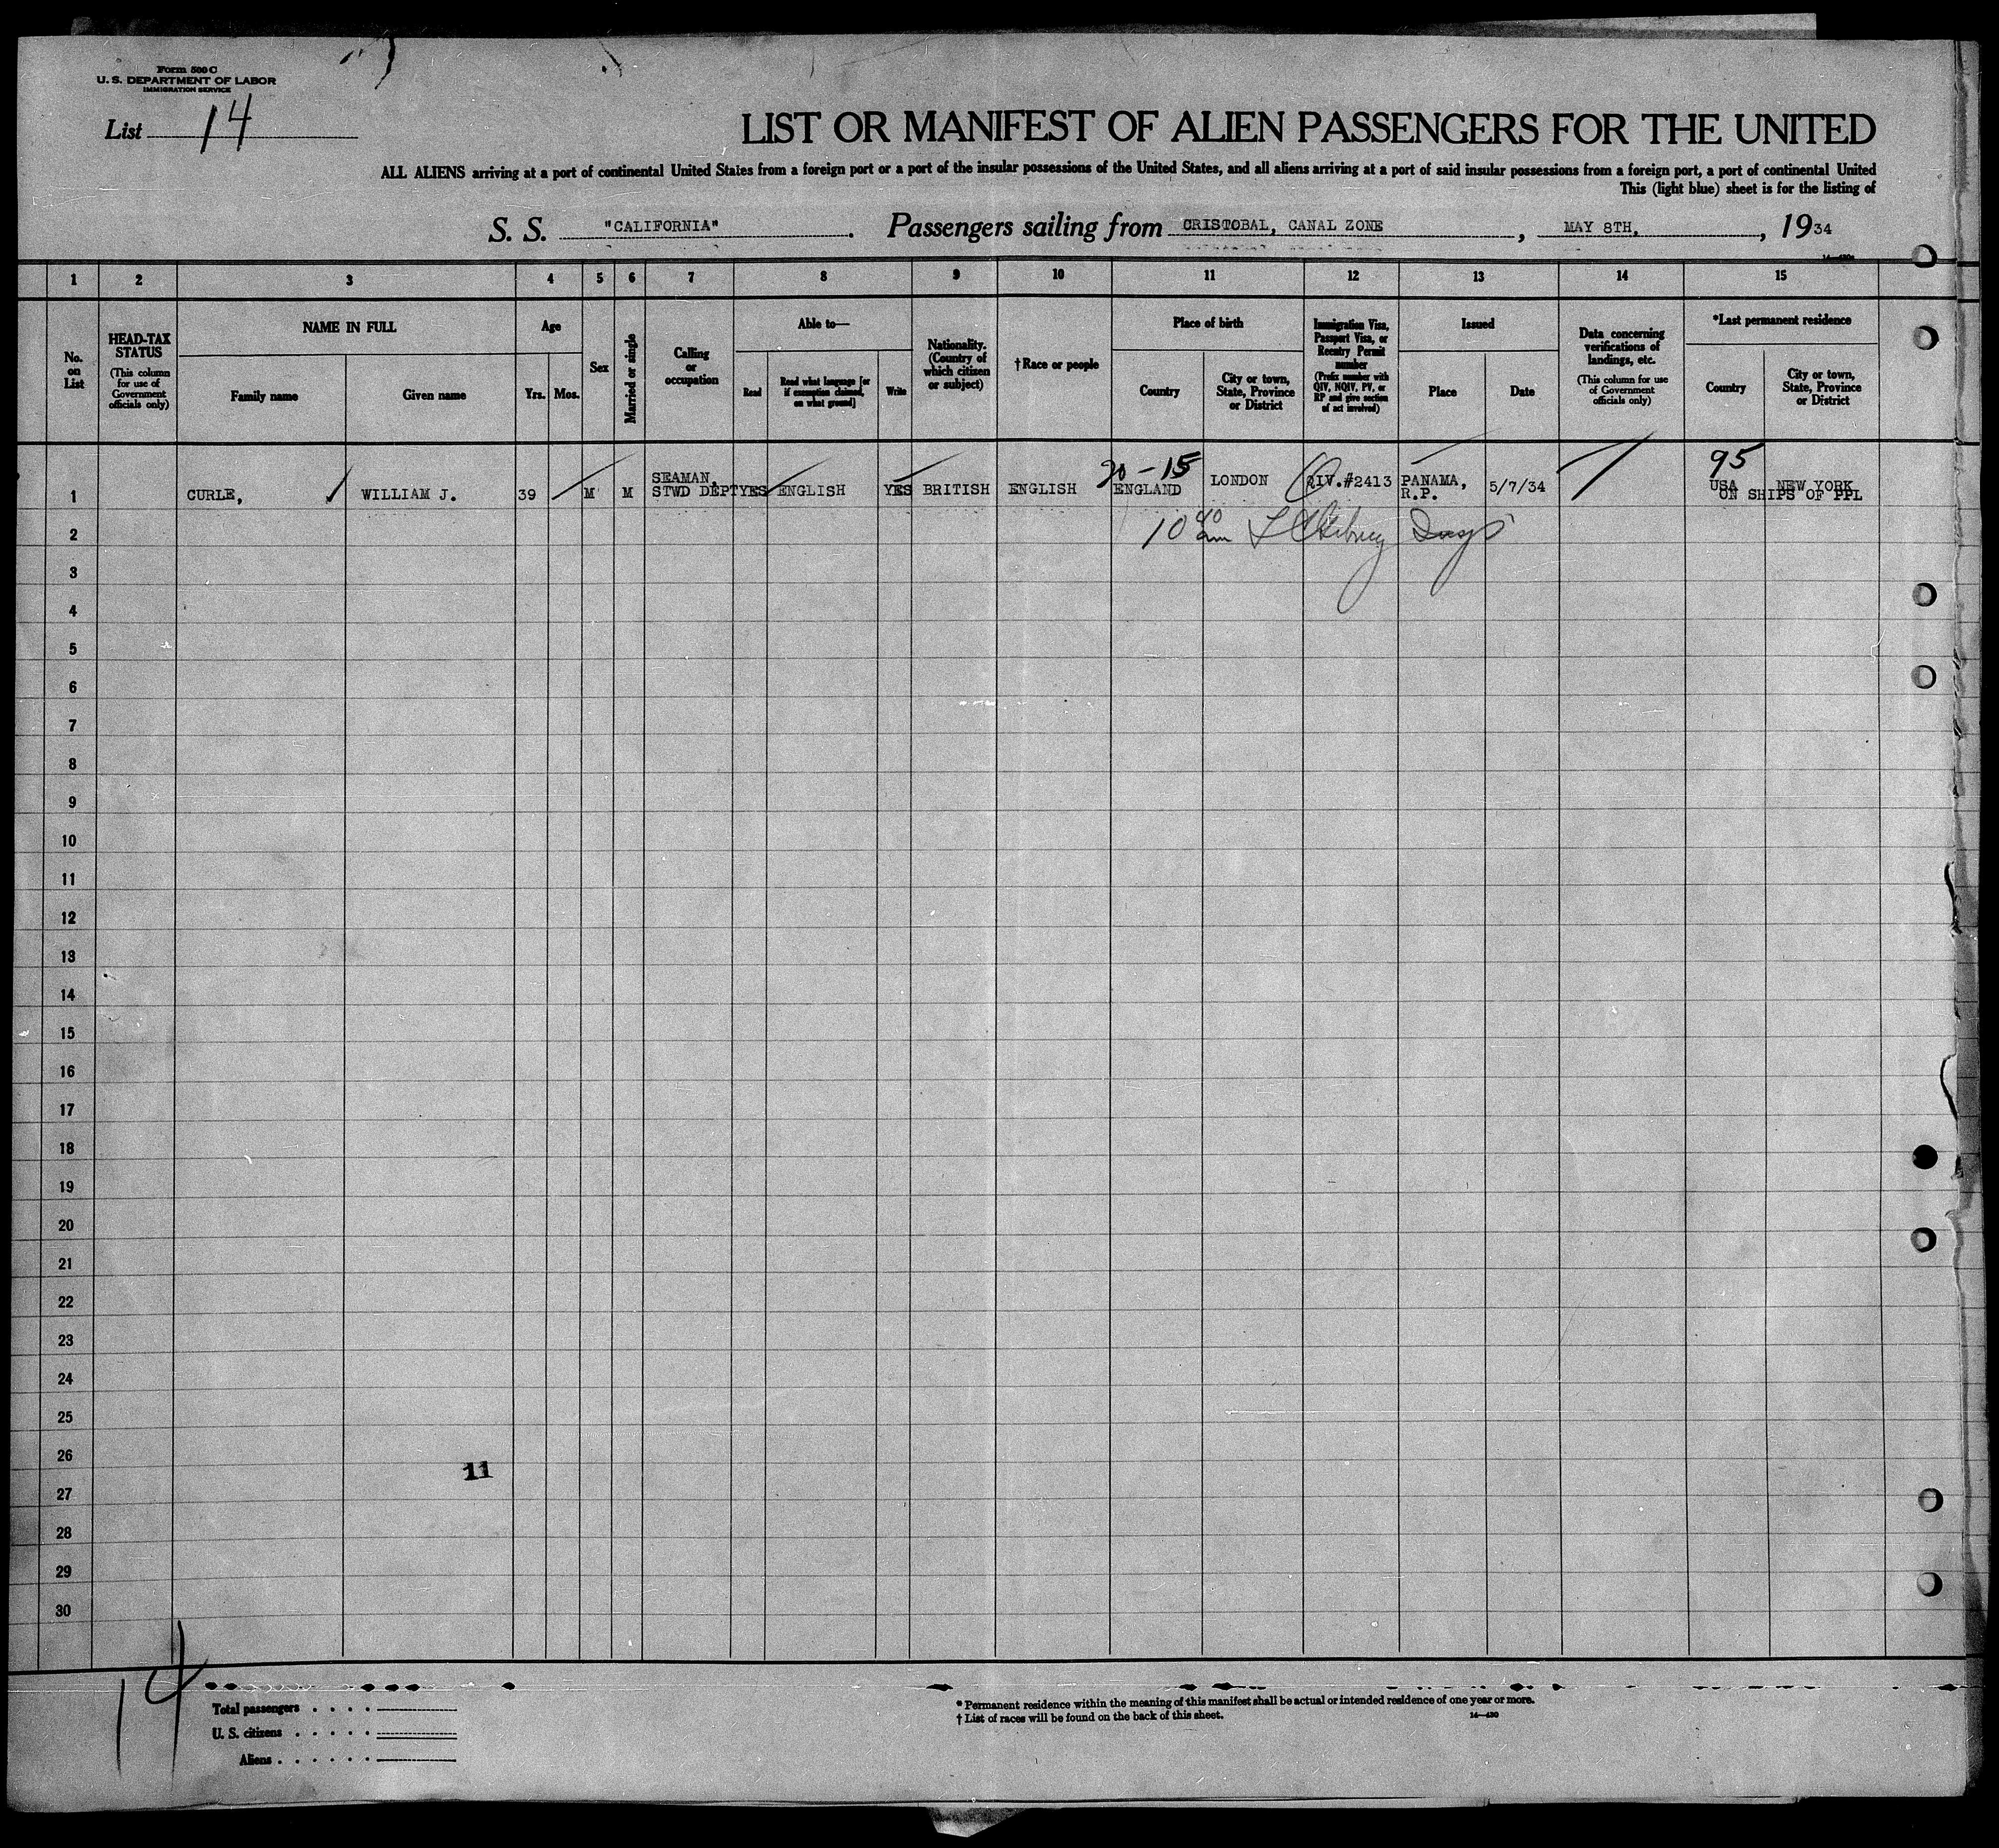 Form 500 C
U. S. DEPARTMENT OF LABOR
IMMIGRATION SERVICE
List 14
LIST OR MANIFEST OF ALIEN PASSENGERS FOR THE UNITED
ALL ALIENS arriving at a port of continental United States from a foreign port or a port of the insular possessions of the United States, and all aliens arriving at a port of said insular possessions from a foreign port, a port of continental United
This (light blue) sheet is for the listing of
S. S. "CALIFORNIA". Passengers sailing from CRISTOBAL, CANAL ZONE, MAY 8TH, 1934
1 2 3 4 5 6 7 8 9 10 11 12 13 14 15
No. on List
HEAD-TAX STATUS (This column for use of Government officials only)
NAME IN FULL
Family name
Given name
Age
Yrs. Mos.
Sex
Married or single
Calling or occupation
Able to—
Read
Read what language [or if exemption claimed, on what ground]
Write
Nationality. (Country of which citizen or subject)
† Race or people
Place of birth
Country
City or town, State, Province or District
Immigration Visa, Passport Visa, or Reentry Permit number (Prefix number with QIV, NQIV, PV, or RP and give section of act involved)
Issued
Place
Date
Data concerning verifications of landings, etc. (This column for use of Government officials only)
*Last permanent residence
Country
City or town, State, Province or District
90-15
95
1 CURLE, WILLIAM J. 39 M M SEAMAN, STWD DEPT YES ENGLISH YES BRITISH ENGLISH ENGLAND LONDON QIV.#2413 PANAMA, R.P. 5/7/34 USA NEW YORK
ON SHIPS OF PPL
2 10 40 am
3
4
5
6
7
8
9
10
11
12
13
14
15
16
17
18
19
20
21
22
23
24
25
26
11
27
28
29
30
14
Total passengers
U. S. citizens
Aliens
* Permanent residence within the meaning of this manifest shall be actual or intended residence of one year or more.
† List of races will be found on the back of this sheet.
14—430